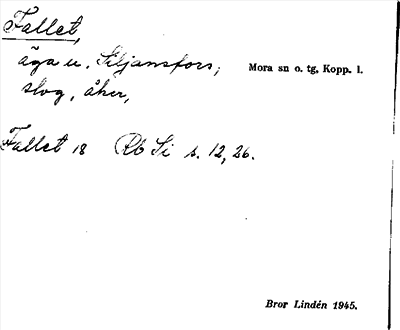 Fallet,
äga u. Siljansfors; Mora sn o. tg, Kopp. l.
skog, åker,
Fallet 18 Rb Si s. 12, 26.
Bror Lindén 1945.